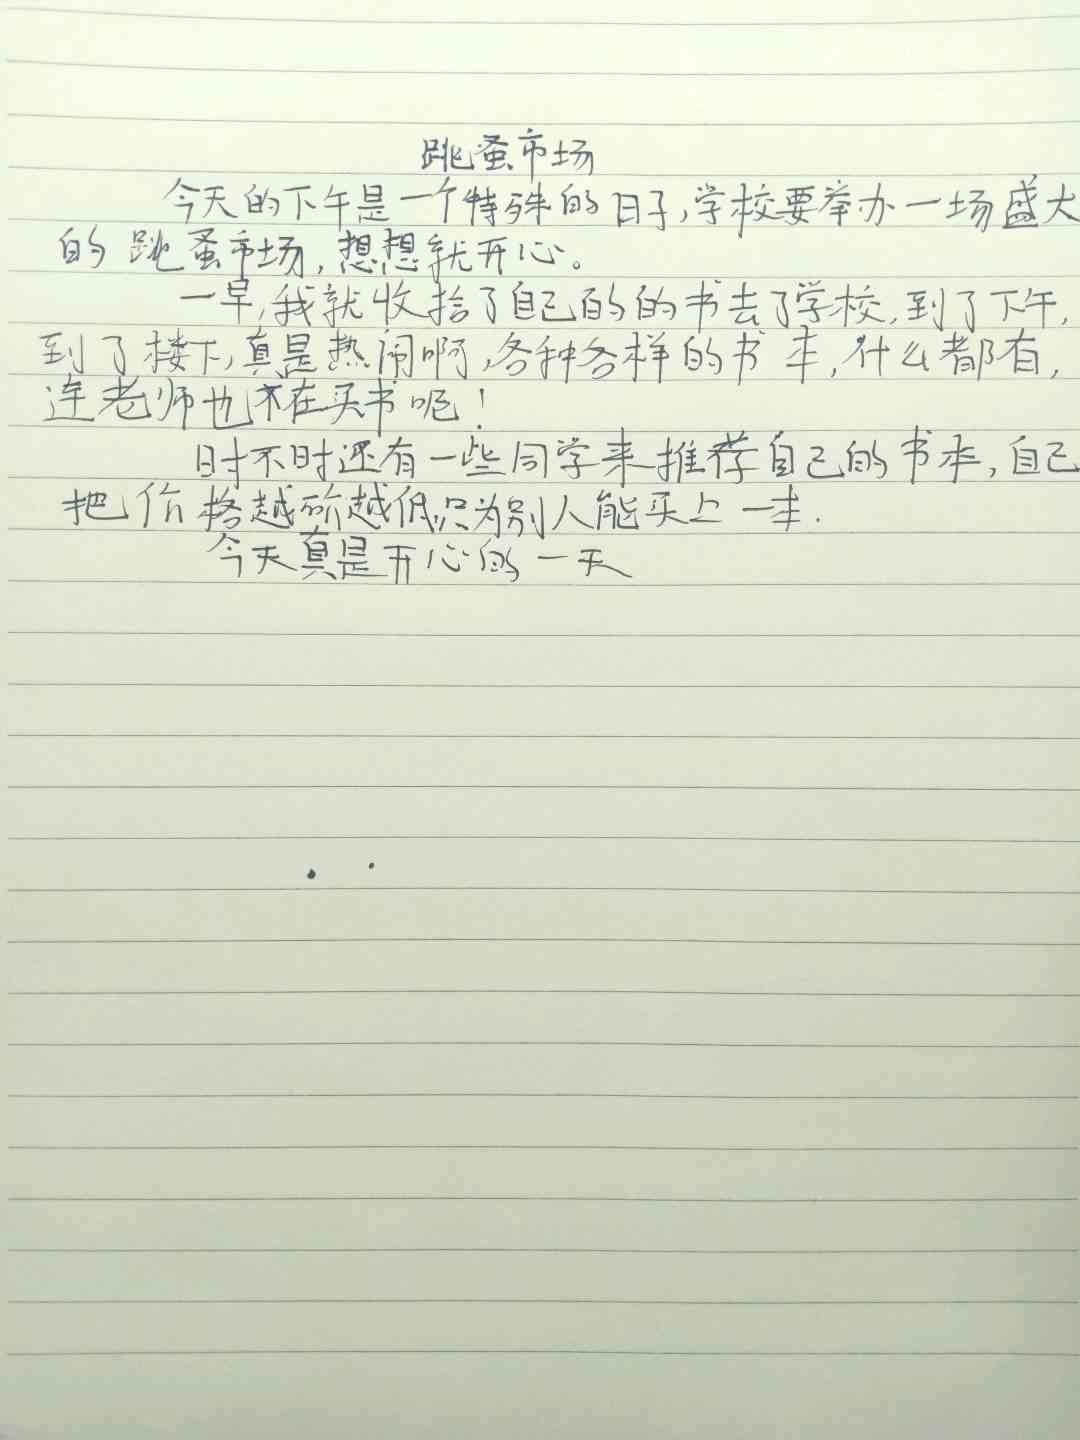 跳蚤市场
今天的下午是一个特殊的日子,学校要举办一场盛大
的跳蚤市场,想想就开心。
一早,我就收拾了自己的的书去了学校,到了下午,
到了楼下,真是热闹啊,各种各样的书本,什么都有,
连老师也来在买书呢!
时不时还有一些同学来推荐自己的书本,自己
把价格越砍越低,只为别人能买上一本.
今天真是开心的一天